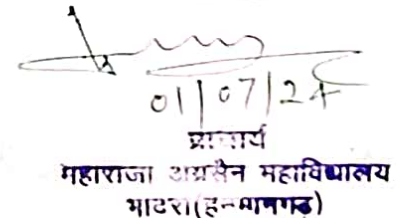 01/07/24
प्राचार्य
महाराजा अग्रसेन महाविद्यालय
भादरा (हनुमानगढ़)